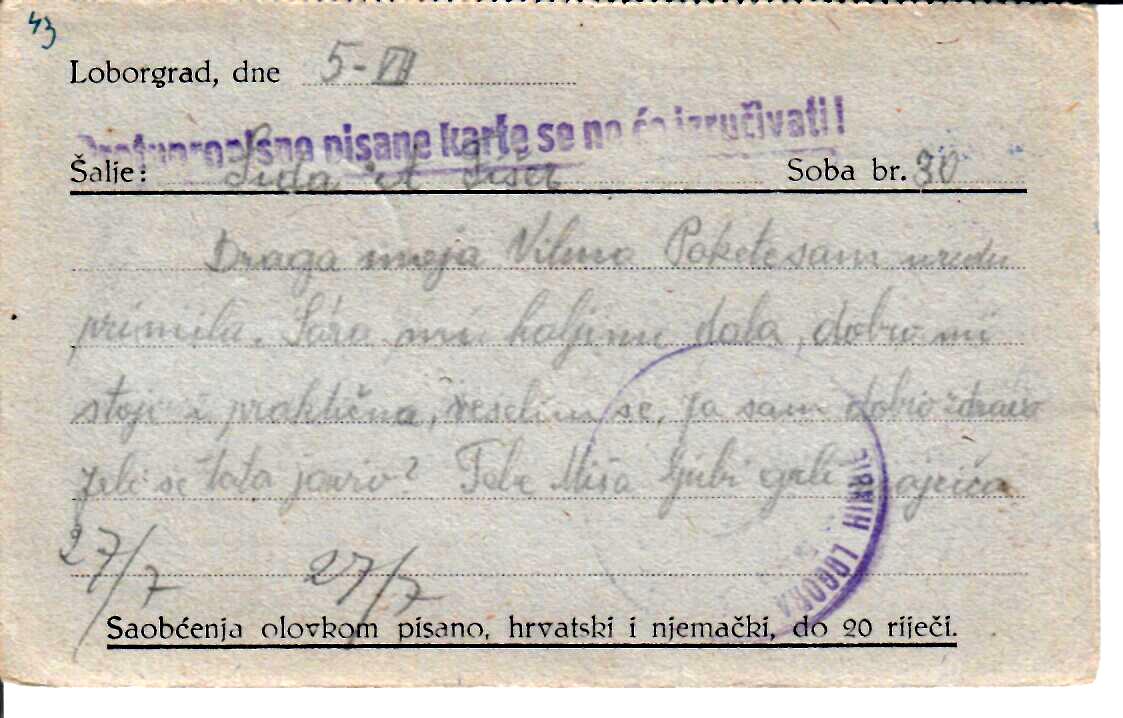 43
Loborgrad, dne 5-VII
Protupropisno pisane karte se ne će izručivati!
Šalje: A Fišer Soba br. 30
Draga moja Vilma Pakete sam uredu
primila. Sára mi haljinu dala, dobro mi
stoji i praktična, veselim se, ja sam dobro zdravo
Jeli se tata javio? Tebe Miša ljubi grli
27/7 27/7
SIRNIH LOGORA
Saobćenja olovkom pisano, hrvatski i njemački, do 20 riječi.